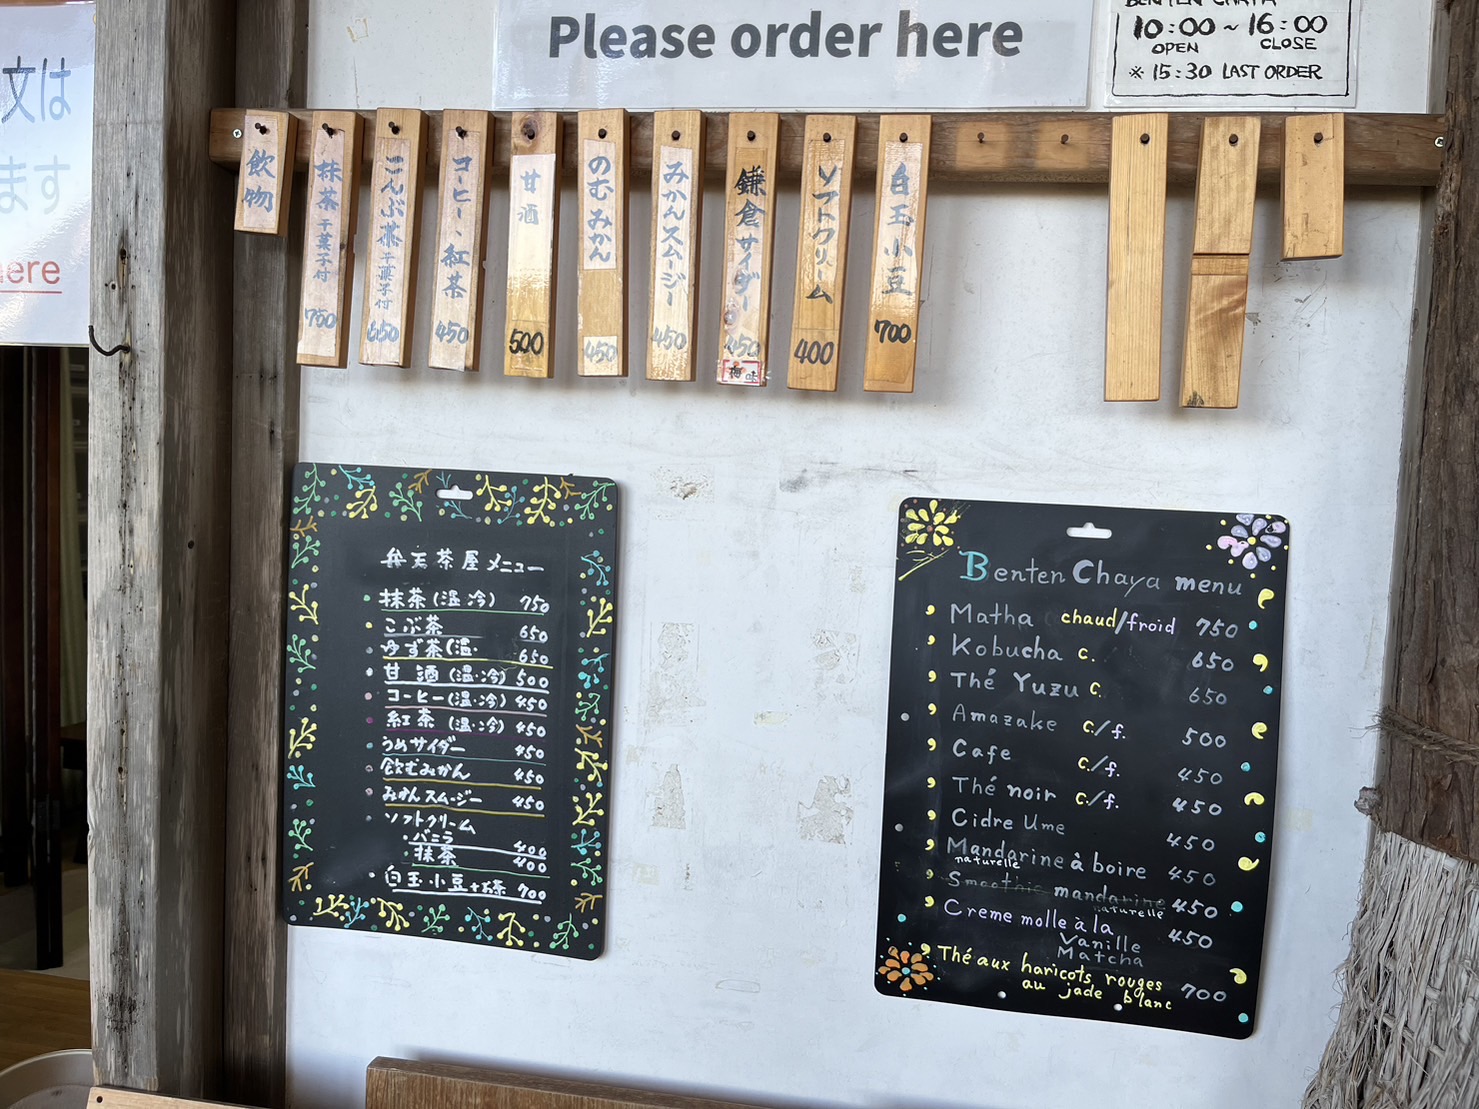 Please order here
BENTEN CHAYA
10:00~16:00
OPEN CLOSE
※ 15:30 LAST ORDER
文は
ます
here
飲物
抹茶 干菓子付 750
こんぶ茶 干菓子付 650
コーヒー・紅茶 450
甘酒 500
のむみかん 450
みかんスムージー 450
鎌倉サイダー 450
梅味
ソフトクリーム 400
白玉小豆 700
弁天茶屋メニュー
抹茶(温・冷) 750
こぶ茶 650
ゆず茶(温・ 650
甘酒(温・冷) 500
コーヒー(温・冷) 450
紅茶(温・冷) 450
うめサイダー 450
飲むみかん 450
みかんスムージー 450
ソフトクリーム
・バニラ 400
・抹茶 400
白玉小豆+お茶 700
Benten Chaya menu
Matha chaud/froid 750
Kobucha c. 650
Thé Yuzu c. 650
Amazake c./f. 500
Cafe c./f. 450
Thé noir c./f. 450
Cidre Ume 450
Mandarine à boire 450
naturelle
Smoothie mandarine 450
naturelle
Creme molle à la 450
Vanille
Matcha
Thé aux haricots rouges
au jade blanc 700